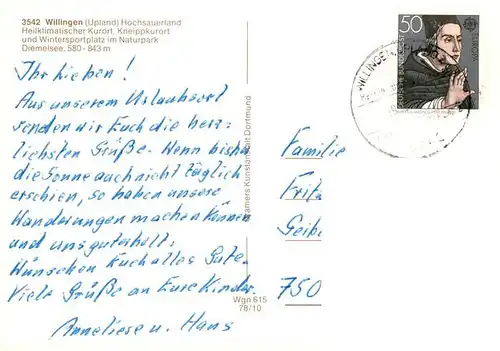 3542 Willingen (Upland) Hochsauerland
Heilklimatischer Kurort, Kneippkurort
und Wintersportplatz im Naturpark
Diemelsee, 580-843 m
Ihr Lieben!
Aus unserem Urlaubsort
senden wir Euch die herz-
lichsten Grüße. Wenn bisher
die Sonne auch nicht täglich
erschien, so haben unsere
Wanderungen machen können
und uns gut erholt.
Wünschen Euch alles Gute.
Viele Grüße an Eure Kinder.
Anneliese u. Hans
Wgn 615
78/10
Cramers Kunstanstalt Dortmund
50
DEUTSCHE BUNDESPOST
EUROPA
WILLINGEN
Familie
Fritz
Geibe
750